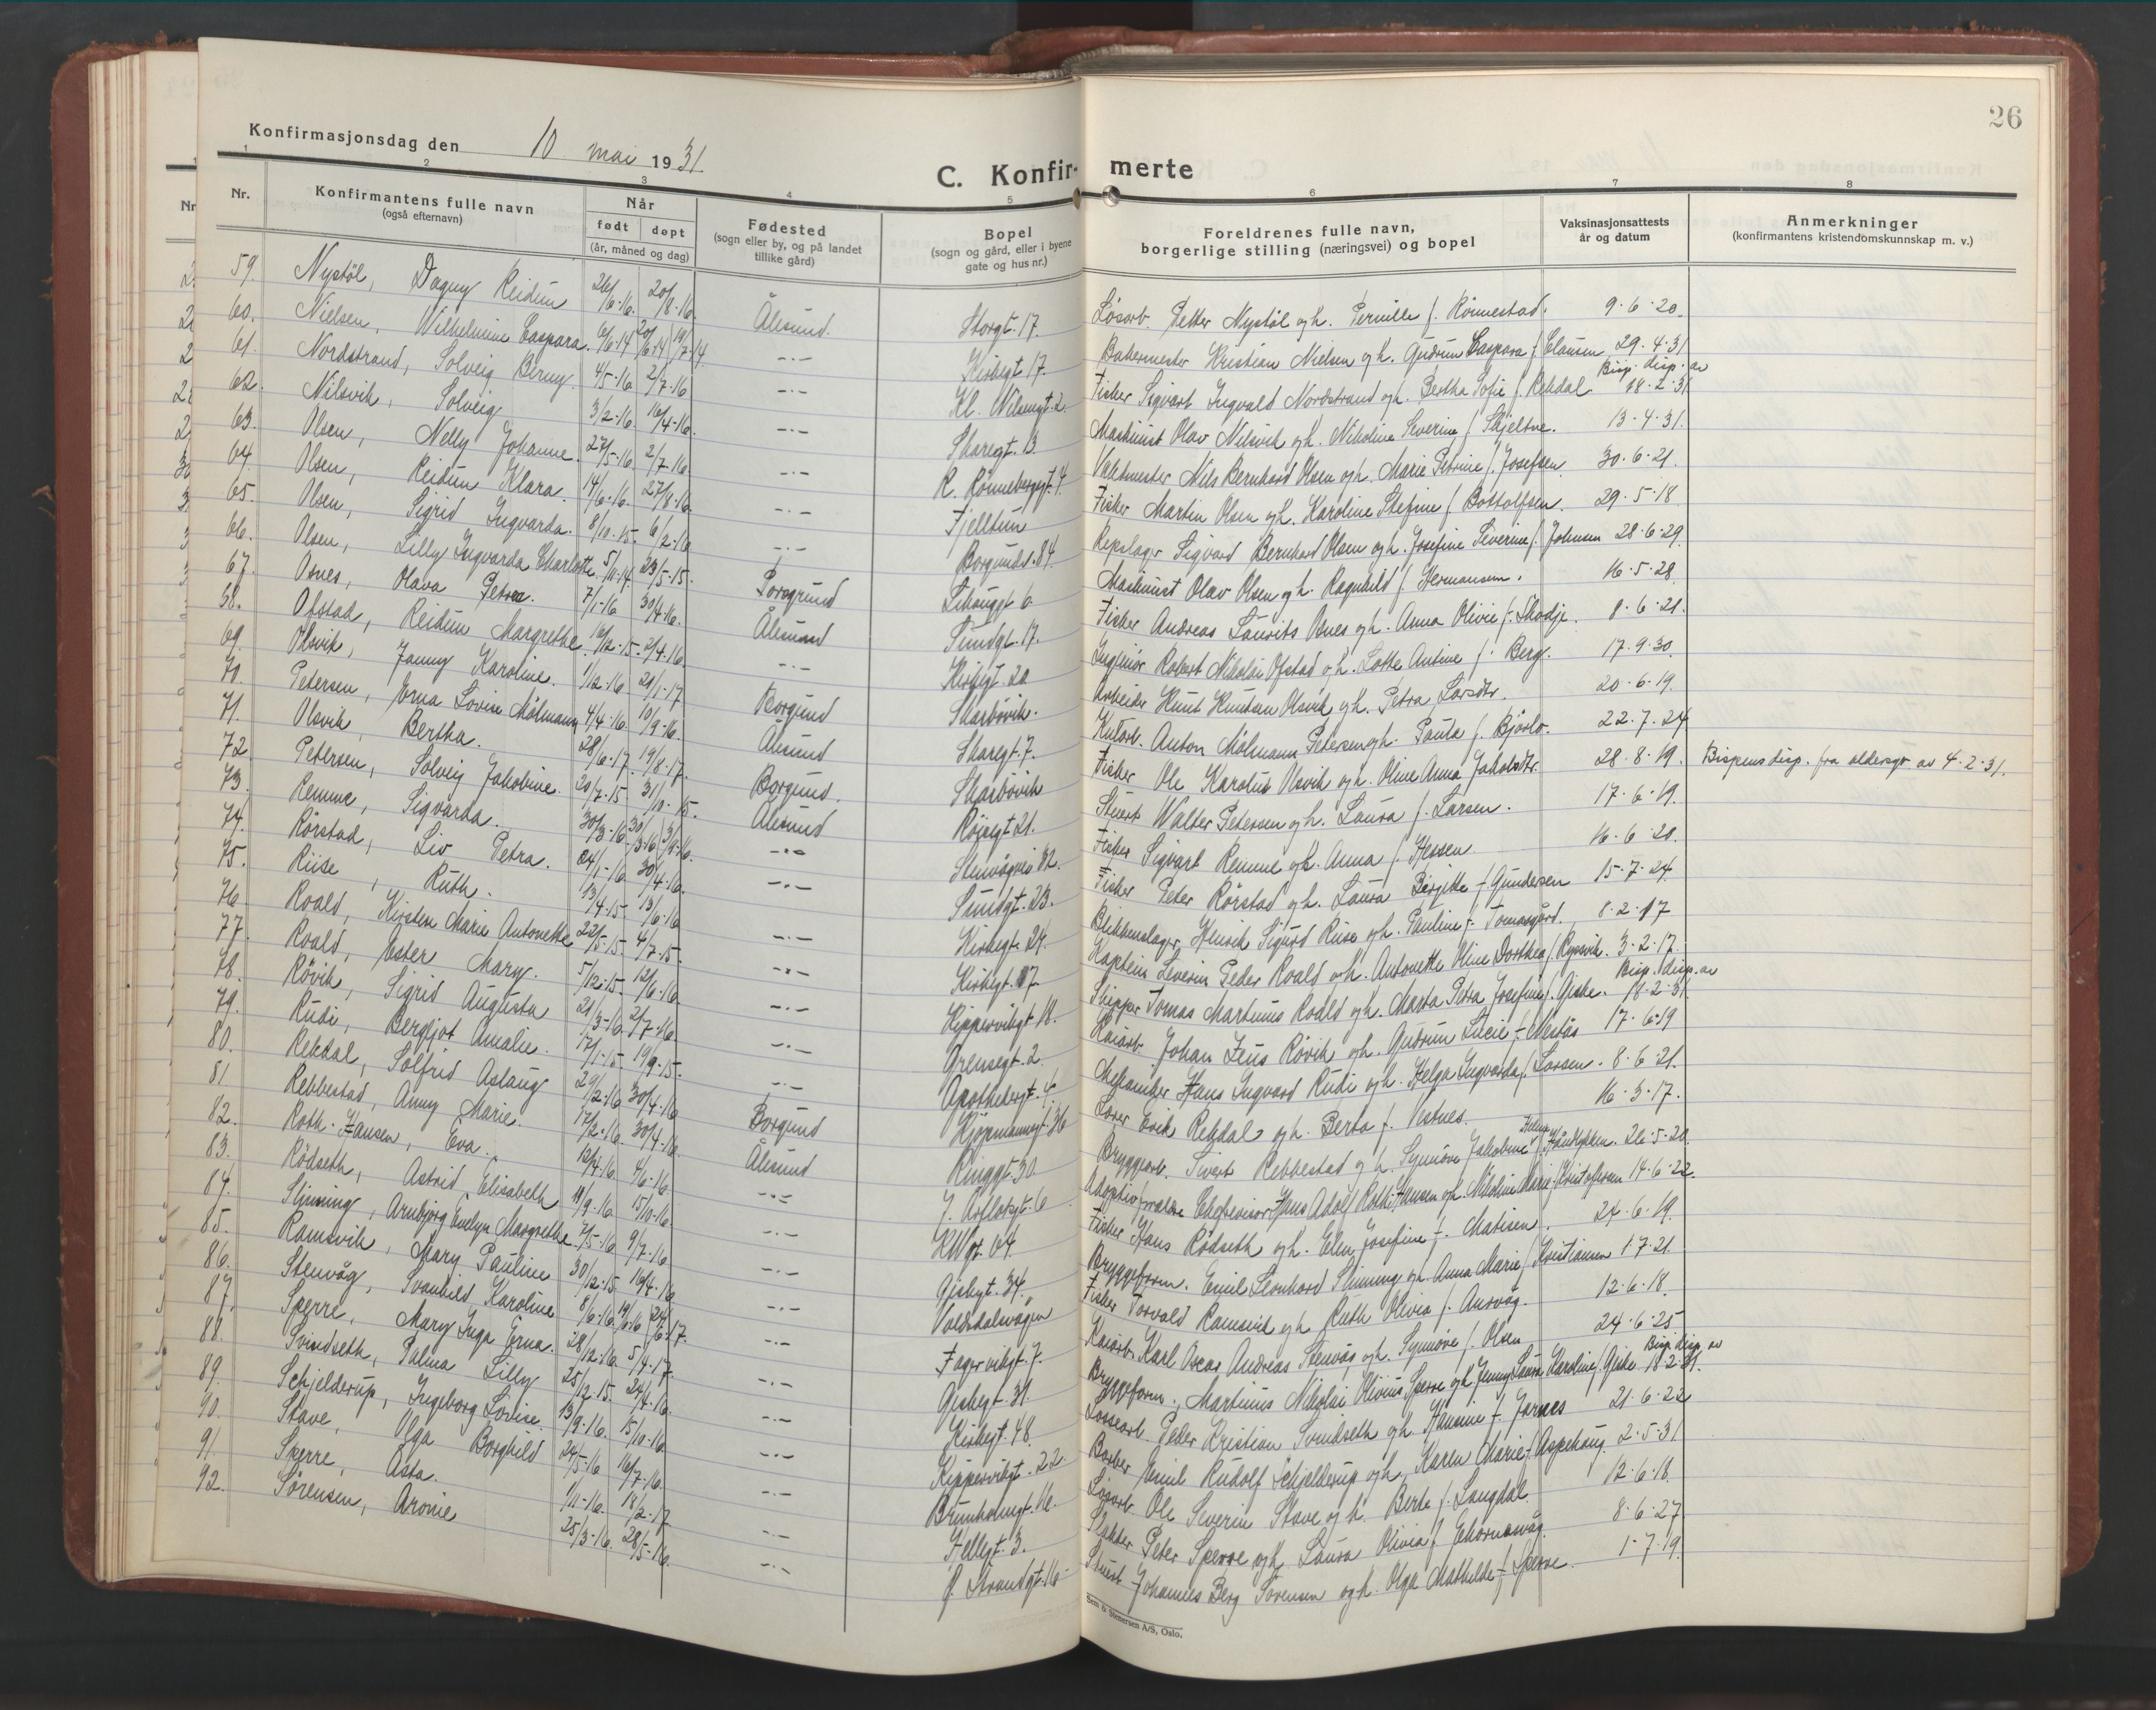 26
Konfirmasjonsdag den 10 mai 1931.
C. Konfir- merte
1 2 3 4 5 6 7 8
Nr. Konfirmantens fulle navn (også efternavn) Når født døpt (år, måned og dag) Fødested (sogn eller by, og på landet tillike gård) Bopel (sogn og gård, eller i byene gate og hus nr.) Foreldrenes fulle navn, borgerlige stilling (næringsvei) og bopel Vaksinasjonsattests år og datum Anmerkninger (konfirmantens kristendomskunnskap m. v.)
59. Nystöl, Dagny Reidun 26/6-16. 20/8-16. Ålesund. Storgt. 17. Lösarb. Petter Nystöl og h. Pernille f. Rönnestad. 9.6.20.
60. Nielsen, Wilhelmine Caspara. 6/6-14 20/6-14 19/7-14. -.- Kirkegt 17. Bakermester Kristian Nielsen og h. Gudrun Caspara f. Clausen 29.4.31 Bisp. disp. av
61. Nordstrand, Solveig Berny. 4/5-16. 2/7-16 -.- Kl. Nilsengt. 2. Fisker Sigvart Ingvald Nordstrand og h. Bertha Sofie f. Rekdal 18.2.31
62. Nilsvik, Solveig 3/2-16. 16/4-16. -.- Skaregt. 13. Maskinist Olav Nilsvik og h. Nikoline Severine f. Skjeltne. 13.4.31.
63. Olsen, Nelly Johanne. 27/5-16. 2/7-16. -.- R. Rönnebergsgt. 4. Valsemester Nils Bernhard Olsen og h. Marie Petrine f. Josefsen. 30.6.21.
64. Olsen, Reidun Klara. 14/6-16. 27/8-16. -.- Fjelltun Fisker Martin Olsen og h. Karoline Stefine f. Bottolfsen. 29.5.18
65. Olsen, Sigrid Ingvarda. 8/10-15. 6/2-16 -.- Borgundv. 84. Repslager Sigvard Bernhard Olsen og h. Josefine Severine f. Johnsen 28.6.29.
66. Olsen, Lilly Ingvarda Charlotte. 5/11-14. 23/5-15. Porsgrund Lihauggt 6 Maskinist Olav Olsen og h. Ragnhild f. Hermansen. 16.5.28.
67. Osnes, Olava Petrea. 7/1-16 30/4-16. Ålesund Sundgt. 17. Fisker Andreas Laurits Osnes og h. Anna Olivie f. Skodje. 8.6.21.
68. Ofstad, Reidun Margrethe. 16/12-15. 2/4-16. -.- Kirkegt. 20 Ingeniör Robert Nikolai Ofstad og h. Lotte Antine f. Berg. 17.9.30.
69. Olsvik, Jenny Karoline. 1/12-16. 21/1-17 Borgund Skarbövik. Arbeider Knut Knutsen Olsvik og h. Petra Larsdtr. 20.6.19.
70. Petersen, Erna Lovise Mölmann 4/4-16. 10/9-16. Ålesund Skaregt. 7. Anton Mölmann Petersen og h. Paula f. Bjørlo. 22.7.24
71. Olsvik, Bertha. 28/6-17. 19/8-17. Borgund. Skarbövik Fisker Ole Karolus Olsvik og h. Oline Anna Jakobsdtr. 28.8.19. Bispens disp. fra aldersgr. av 4.2.31.
72. Petersen, Solveig Jakobine. 20/7-15. 31/10-15. Ålesund Röisegt 21. Stuert Walter Petersen og h. Laura f. Larsen. 17.6.19.
73. Remme, Sigvarda. 30/3-16 30/3-16 3/9-16. -.- Stenvågvei 32. Fisker Sigvart Remme og h. Anna f. Hessen 16.6.20.
74. Rörstad, Liv Petra. 24/1-16 30/4-16. -.- Sundgt. 23. Fisker Peter Rörstad og h. Laura Bergitte f. Gundersen 15.7.24.
75. Riise, Ruth. -.- Kirkegt. 24. Blikkenslager Henrik Sigurd Riise og h. Pauline f. Tomasgård. 8.2.17
76. Roald, Kirsten Marie Antonette 22/5-15. 4/7-15. -.- Kirkegt. 17. Kaptein Severin Peder Roald og h. Antonette Oline Dorthea f. Ryssvik. 3.2.17. Bisp. disp. av
77. Roald, Ester Mary. 5/12-15. 12/6-16 -.- Kippervikgt 18. Skipper Tomas Martinus Roald og h. Marta Petra Josefine f. Giske. 18.2.31.
78. Rövik, Sigrid Augusta 21/3-16. 2/7-16. -.- Grensegt. 2. Kaiarb. Johan Zeus Rövik og h. Gudrun Lucie f. Mesös 17.6.19
79. Rudi, Bergljot Amalie. 17/1-15. 19/9-15. -.- Apothekergt. 4. Mekaniker Hans Ingvard Rudi og h. Helga Ingvarda f. Larsen. 8.6.21.
80. Rekdal, Solfrid Aslaug 29/2-16 30/4-16 Borgund Kjøpmannsgt. 36 Losser Erik Rekdal og h. Berta f. Vestnes. 16.3.17.
81 Rebbestad, Anny Marie. 17/2-16. 30/4-16. Ålesund Ringgt. 30 Bryggearb. Sivert Rebbestad og h. Synnöve Jakobine Helene f. Håndlykken. 26.5.20
82. Roth-Hansen, Eva. 12/4-16. 4/6-16. -.- J. Asflotsgt. 6 Adoptivforeldre Chefrevisor Hans Adolf Roth-Hansen og h. Nikoline Marie f. Kristofersen 14.6.22.
83. Rödseth, Astrid Elisabeth 19/9-16. 15/10-16. -.- KWgt. 64. Fisker Hans Rödseth og h. Elen Josefine f. Matisen. 24.6.19.
84. Slinning, Arnbjörg Evelyn Margrethe. 2/5-16 9/7-16. -.- Giskegt. 34. Bryggeform. Emil Leonhard Slinning og h. Anna Marie f. Kristiansen 1.7.21.
85. Ramsvik, Mary Pauline 30/12-15 16/4-16 -.- Voldsdalsvågen Fisker Torvald Ramsvik og h. Ruth Olivia f. Aursvåg. 12.6.18.
86. Stenvåg, Svanhild Karoline 8/6-16. 19/6-16 24/6-17. -.- Fagervikgt. 7. Kaiarb. Karl Oscar Andreas Stenvåg og h. Synnöve f. Olsen 24.6.25 Bisp. disp. av
87. Sperre, Mary Inga Erna. 28/12-16. 5/4-17. -.- Giskegt. 31. Bryggeform. Martinus Nikolai Olivius Sperre og h. Jenny Laura Karoline f. Giske 18.2.31.
88. Svindseth, Palma Lilly 25/12-15. 24/4-16. -.- Kirkegt. 48. Lossearb. Peder Kristian Svindseth og h. Hansine f. Jarnes 21.6.22
89. Schjelderup, Ingeborg Lovise. 13/9-16. 15/10-16. -.- Kippervikgt. 22. Barber Emil Rudolf Schjelderup og h. Karen Marie f. Aspehaug. 2.5.31
90. Stave, Olga Borghild 24/5-16 16/7-16. -.- Brunholmgt. 16. Lösarb. Ole Severin Stave og h. Berte f. Langdal. 12.6.18.
91 Sperre, Asta. 1/11-16. 18/2-17 -.- Hellegt. 3. Peter Sperre og h. Laura Olivia f. 8.6.27
92. Sörensen, Aronie 25/3-16. 28/5-16. -.- Ö. Strandgt. 16. Stuert Johannes Berg Sörensen og h. Olga Mathilde f. Sperre. 1.7.19.
Sem & Stenersen A/S, Oslo.